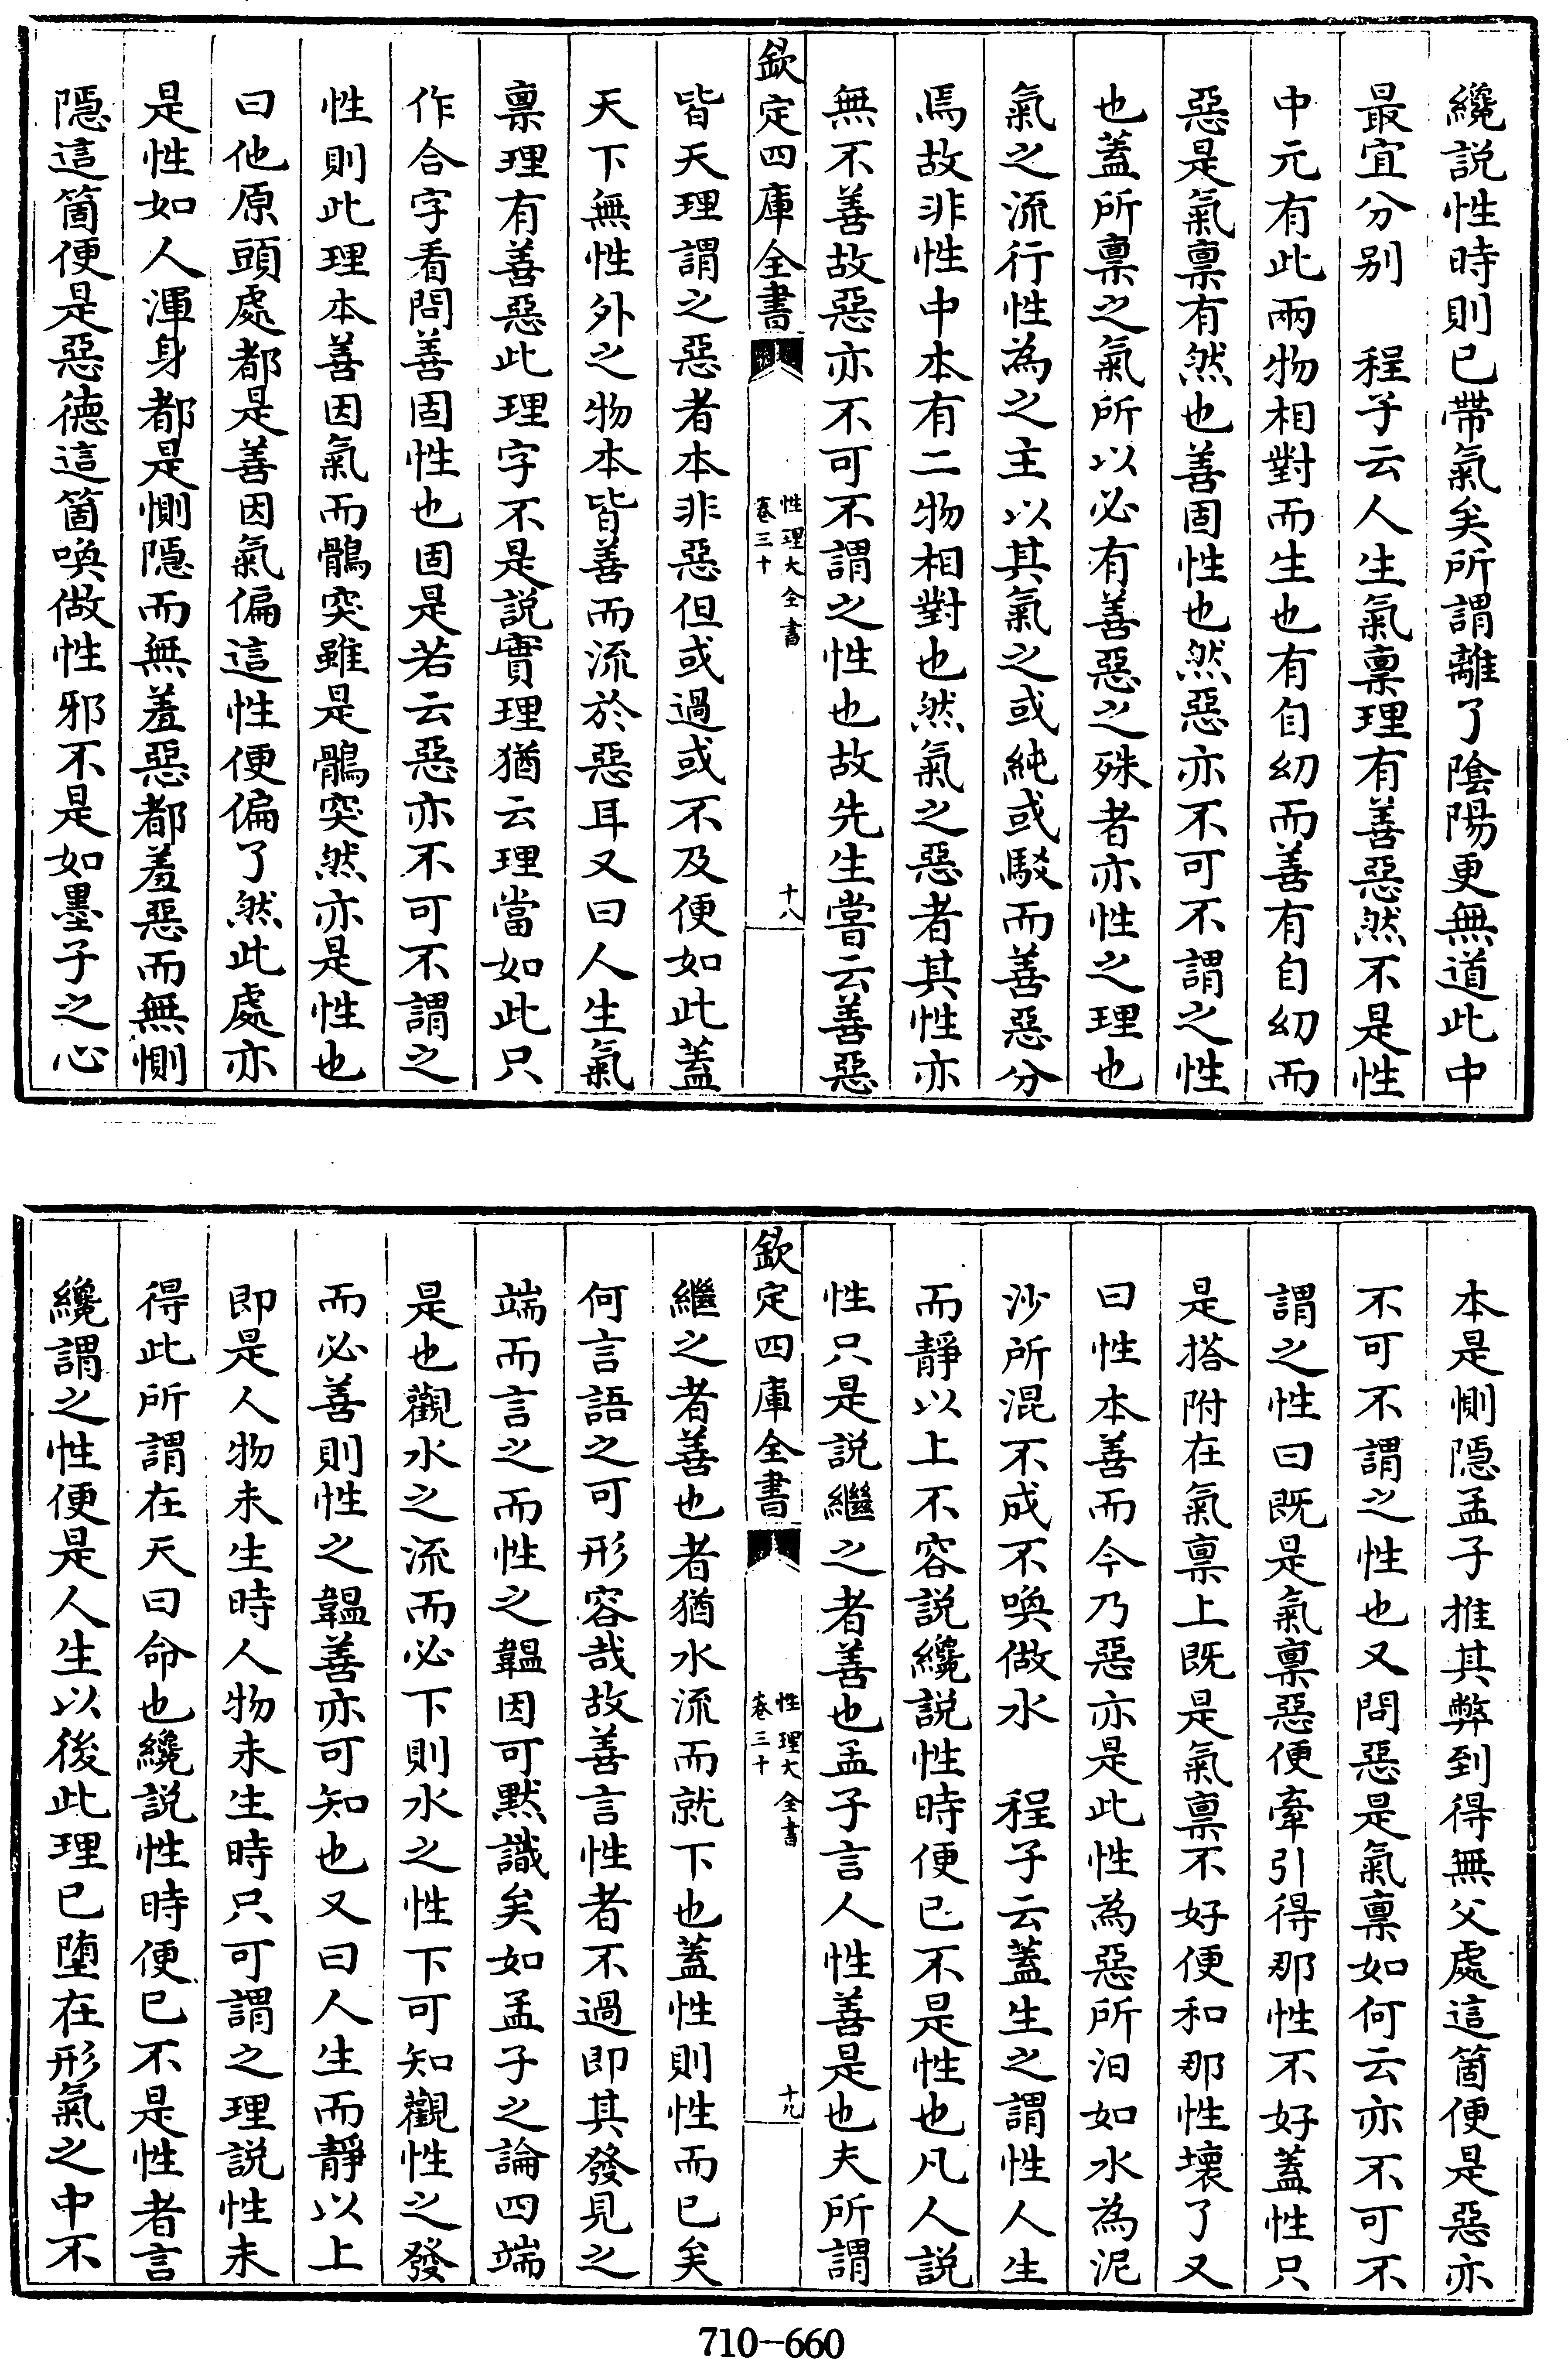 纔説性時則已帶氣矣所謂離了陰陽更無道此中
最宜分别　程子云人生氣禀理有善惡然不是性
中元有此兩物相對而生也有自幼而善有自幼而
惡是氣禀有然也善固性也然惡亦不可不謂之性
也蓋所禀之氣所以必有善惡之殊者亦性之理也
氣之流行性為之主以其氣之或純或駁而善惡分
焉故非性中本有二物相對也然氣之惡者其性亦
無不善故惡亦不可不謂之性也故先生嘗云善惡
欽定四庫全書
性理大全書
卷三十
十八
皆天理謂之惡者本非惡但或過或不及便如此蓋
天下無性外之物本皆善而流於惡耳又曰人生氣
禀理有善惡此理字不是説實理猶云理當如此只
作合字看問善固性也固是若云惡亦不可不謂之
性則此理本善因氣而鶻突雖是鶻突然亦是性也
曰他原頭處都是善因氣偏這性便偏了然此處亦
是性如人渾身都是惻隱而無羞惡都羞惡而無惻
隱這箇便是惡德這箇喚做性邪不是如墨子之心
本是惻隱孟子推其弊到得無父處這箇便是惡亦
不可不謂之性也又問惡是氣禀如何云亦不可不
謂之性曰既是氣禀惡便牽引得那性不好蓋性只
是搭附在氣禀上既是氣禀不好便和那性壞了又
曰性本善而今乃惡亦是此性為惡所汩如水為泥
沙所混不成不喚做水　程子云蓋生之謂性人生
而靜以上不容説纔説性時便已不是性也凡人説
性只是説繼之者善也孟子言人性善是也夫所謂
欽定四庫全書
性理大全書
卷三十
十九
繼之者善也者猶水流而就下也蓋性則性而已矣
何言語之可形容哉故善言性者不過即其發見之
端而言之而性之韞因可黙識矣如孟子之論四端
是也觀水之流而必下則水之性下可知觀性之發
而必善則性之韞善亦可知也又曰人生而靜以上
即是人物未生時人物未生時只可謂之理説性未
得此所謂在天曰命也纔説性時便已不是性者言
纔謂之性便是人生以後此理已墮在形氣之中不
710-660